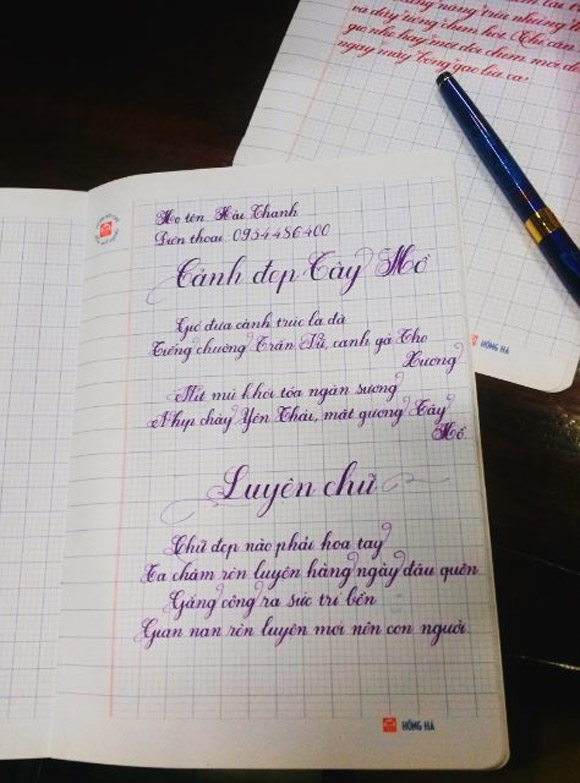 nắng trĩu những
và dây tiếng chim hót
ngày mây bông gạo lìa xa
Họ tên Hải Thanh
Điện thoại: 0934486400
Cảnh đẹp Tây Hồ
Gió đưa cành trúc la đà
Tiếng chuông Trấn Vũ, canh gà Thọ
Xương
Mịt mù khói tỏa ngàn sương
Nhịp chày Yên Thái, mặt gương Tây
Hồ.
Luyện chữ
Chữ đẹp nào phải hoa tay
Ta chăm rèn luyện hàng ngày đâu quên
Gắng công ra sức trí bền
Gian nan rèn luyện mới nên con người.
HỒNG HÀ
HỒNG HÀ